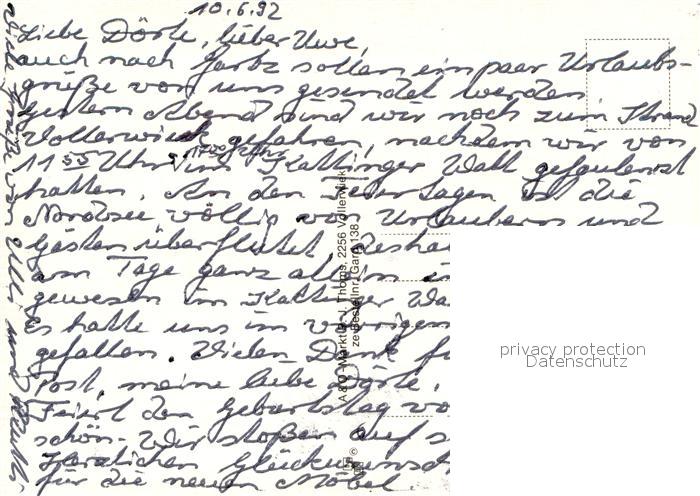 10.6.92
Liebe Dörte, lieber Uwe,
auch nach Garbz sollen ein paar Urlaubs-
grüße von uns gesendet werden
Gestern Abend sind wir noch zum Strand
Vollerwiek gefahren, nachdem wir von
11 55 Uhr 17 00 Uhr im Kattinger Watt gefaulenzt
hatten. An den Feiertagen ist die
Nordsee völlig von Urlaubern und
Gästen überflutet, desha
am Tage ganz allein i
gewesen im Kattinger Wa
es hatte uns im vorigen
gefallen. Vielen Dank f
Post, meine liebe Dörte.
Feiert den Geburtstag vo
schön - Wir stoßen auf s
Herzlichen Glückwunsch
für die neuen Möbel.
viele Grüße von Ulli und
A & O -Markt D. J. Thoms, 2256 Vollerwiek
Bestellnr. Gard 138
privacy protection
Datenschutz